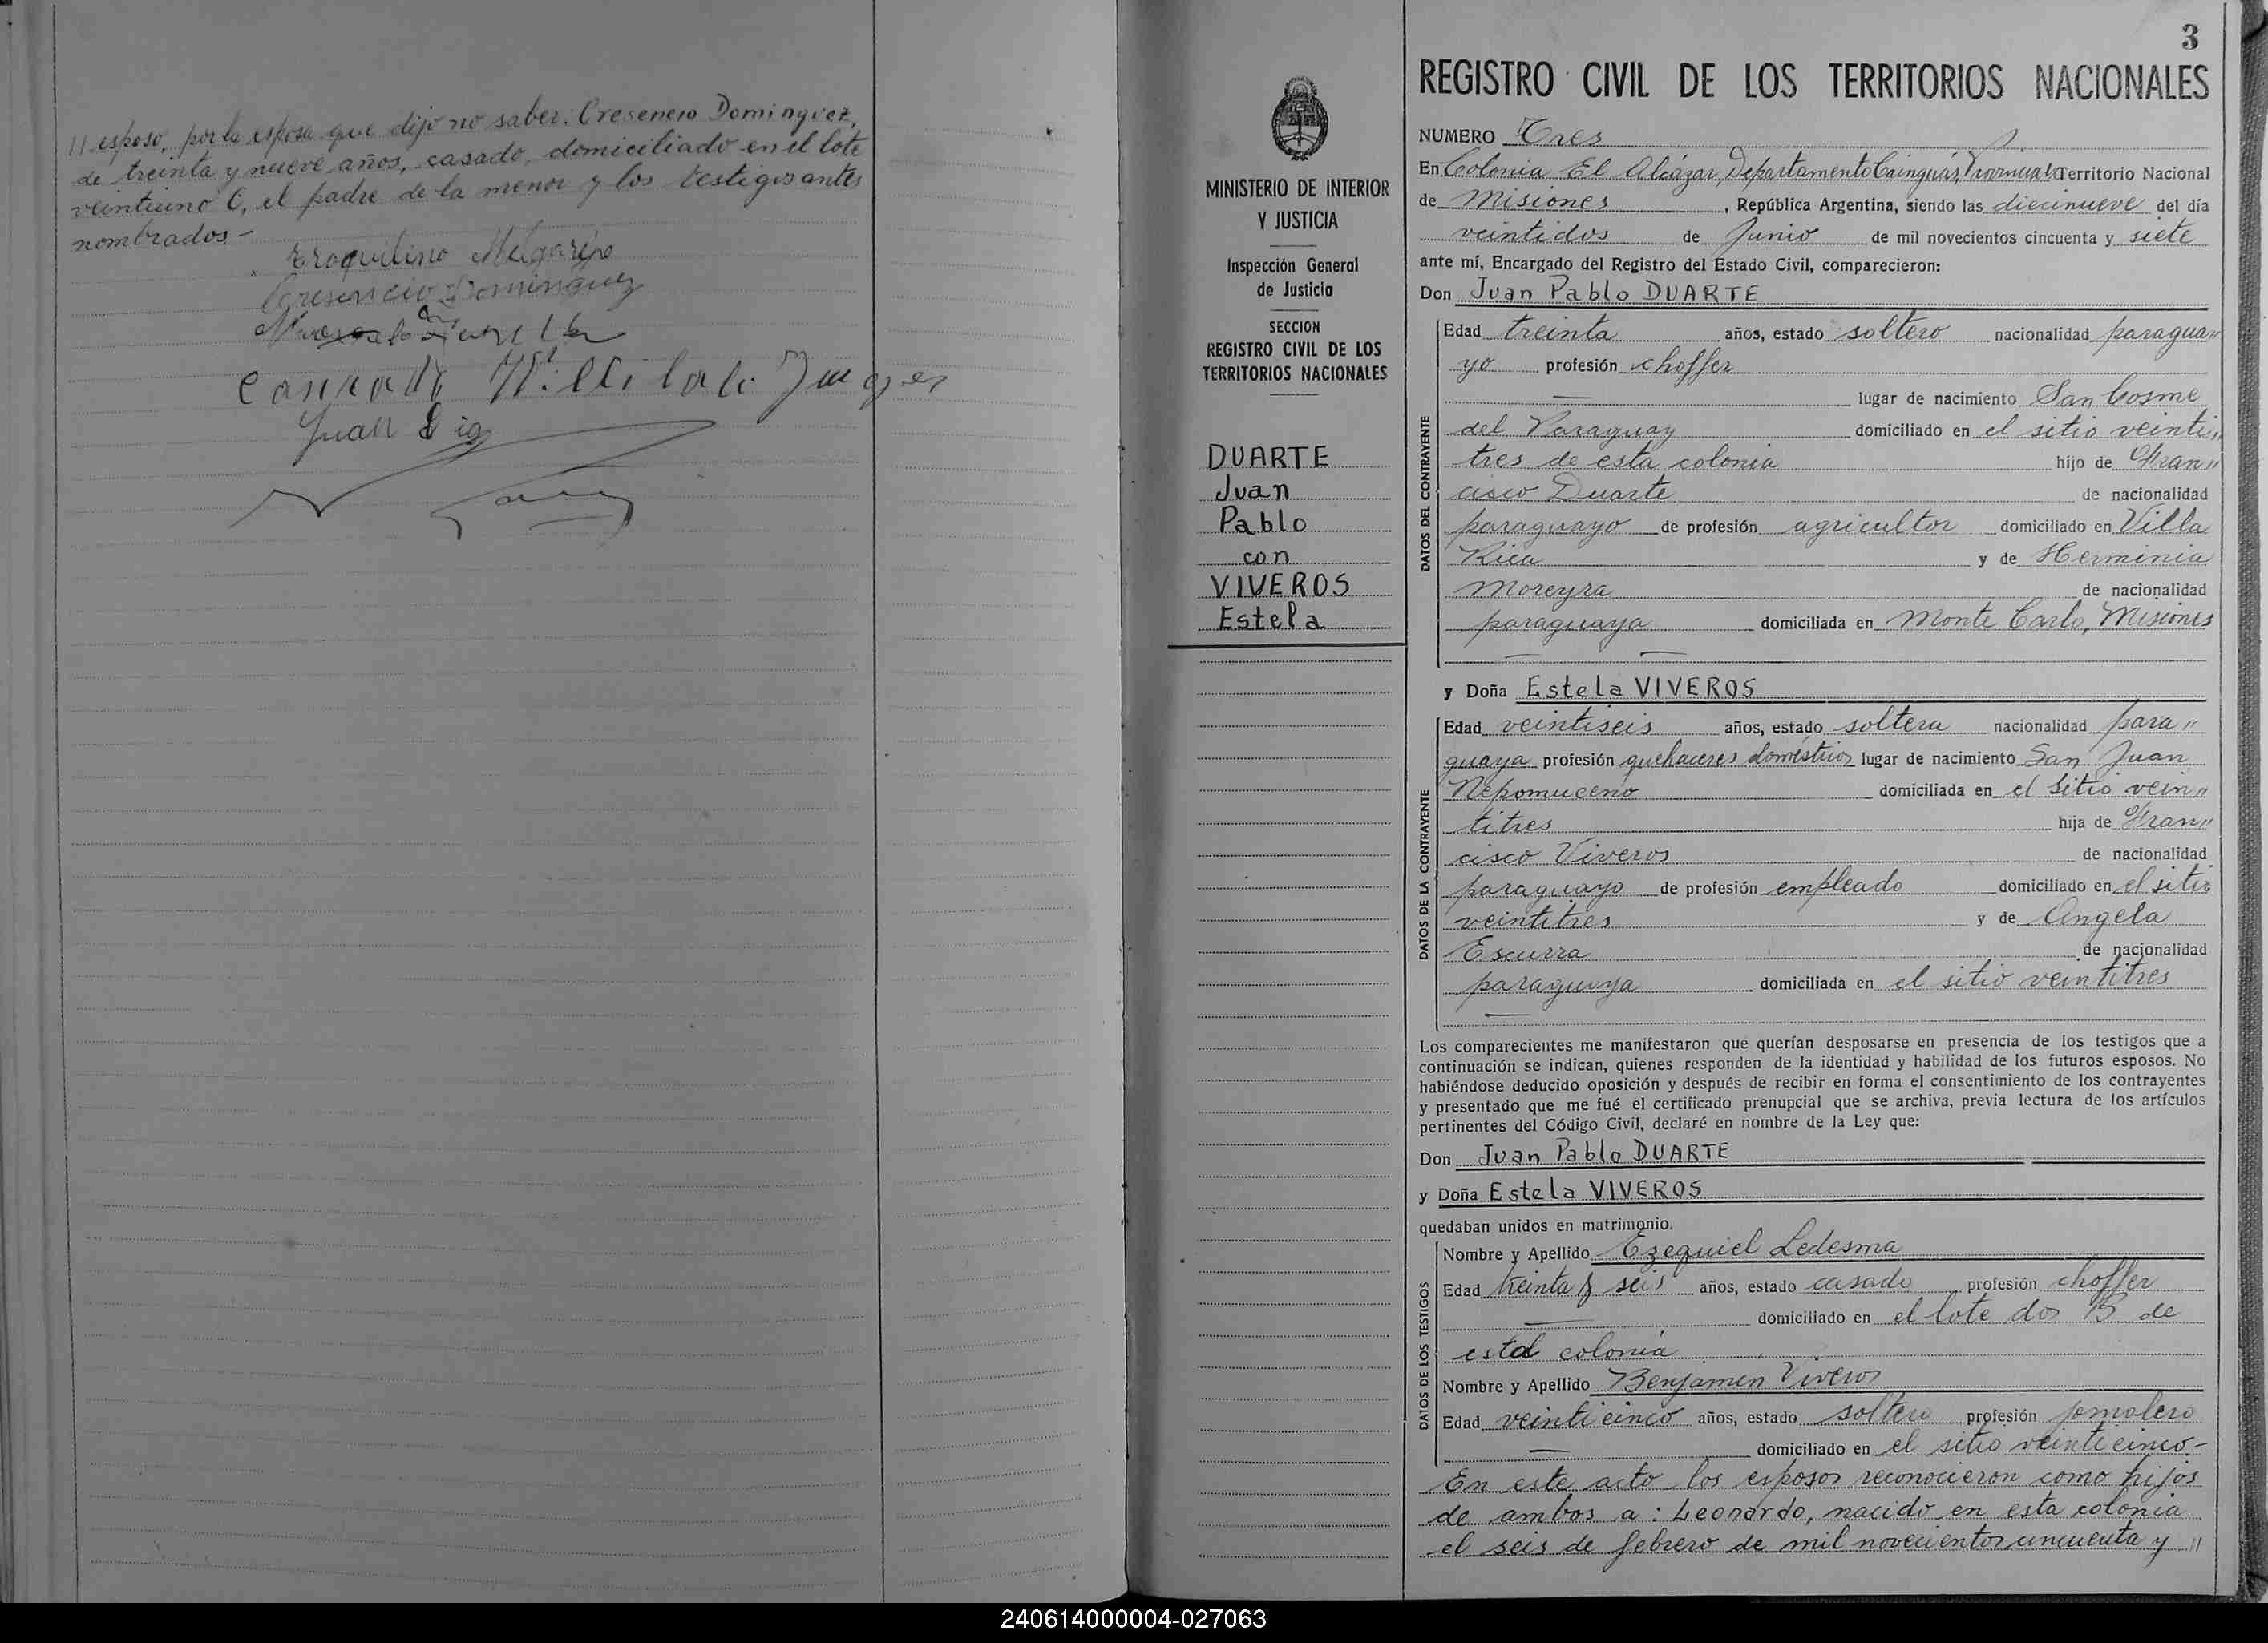 // esposo, por la esposa que dijo no saber: Cresencio Dominguez,
de treinta y nueve años, casado, domiciliado en el lote
veintiuno C, el padre de la menor y los testigos antes
nombrados -
Melgarejo
Cresencio Dominguez
Juan
3
REGISTRO CIVIL DE LOS TERRITORIOS NACIONALES
MINISTERIO DE INTERIOR
Y JUSTICIA
Inspección General
de Justicia
SECCION
REGISTRO CIVIL DE LOS
TERRITORIOS NACIONALES
DUARTE
Juan
Pablo
con
VIVEROS
Estela
NUMERO Tres
En Colonia El Alcázar, Departamento Cainguás, Provincia Territorio Nacional
de Misiones, República Argentina, siendo las diecinueve del día
veintidos de Junio de mil novecientos cincuenta y siete
ante mí, Encargado del Registro del Estado Civil, comparecieron:
Don Juan Pablo DUARTE
DATOS DEL CONTRAYENTE
Edad treinta años, estado soltero nacionalidad paragua"
yo profesión choffer
— lugar de nacimiento San Cosme
del Paraguay domiciliado en el sitio veinti"
tres de esta colonia hijo de Fran"
cisco Duarte de nacionalidad
paraguayo de profesión agricultor domiciliado en Villa
Rica y de Herminia
Moreyra de nacionalidad
paraguaya domiciliada en Monte Carlo, Misiones
y Doña Estela VIVEROS
DATOS DE LA CONTRAYENTE
Edad veintiseis años, estado soltera nacionalidad para"
guaya profesión quehaceres domésticos lugar de nacimiento San Juan
Nepomuceno domiciliada en el sitio vein"
titres hija de Fran"
cisco Viveros de nacionalidad
paraguayo de profesión empleado domiciliado en el sitio
veintitres y de Angela
Escurra de nacionalidad
paraguaya domiciliada en el sitio veintitres
Los comparecientes me manifestaron que querían desposarse en presencia de los testigos que a
continuación se indican, quienes responden de la identidad y habilidad de los futuros esposos. No
habiéndose deducido oposición y después de recibir en forma el consentimiento de los contrayentes
y presentado que me fué el certificado prenupcial que se archiva, previa lectura de los artículos
pertinentes del Código Civil, declaré en nombre de la Ley que:
Don Juan Pablo DUARTE
y Doña Estela VIVEROS
quedaban unidos en matrimonio.
DATOS DE LOS TESTIGOS
Nombre y Apellido Ezequiel Ledesma
Edad treinta y seis años, estado casado profesión choffer
— domiciliado en el lote dos B de
esta colonia
Nombre y Apellido Benjamin Viveros
Edad veinticinco años, estado soltero profesión jornalero
— domiciliado en el sitio veinticinco.-
En este acto los esposos reconocieron como hijos
de ambos a: Leonardo, nacido en esta colonia
el seis de febrero de mil novecientos cincuenta y "
240614000004-027063